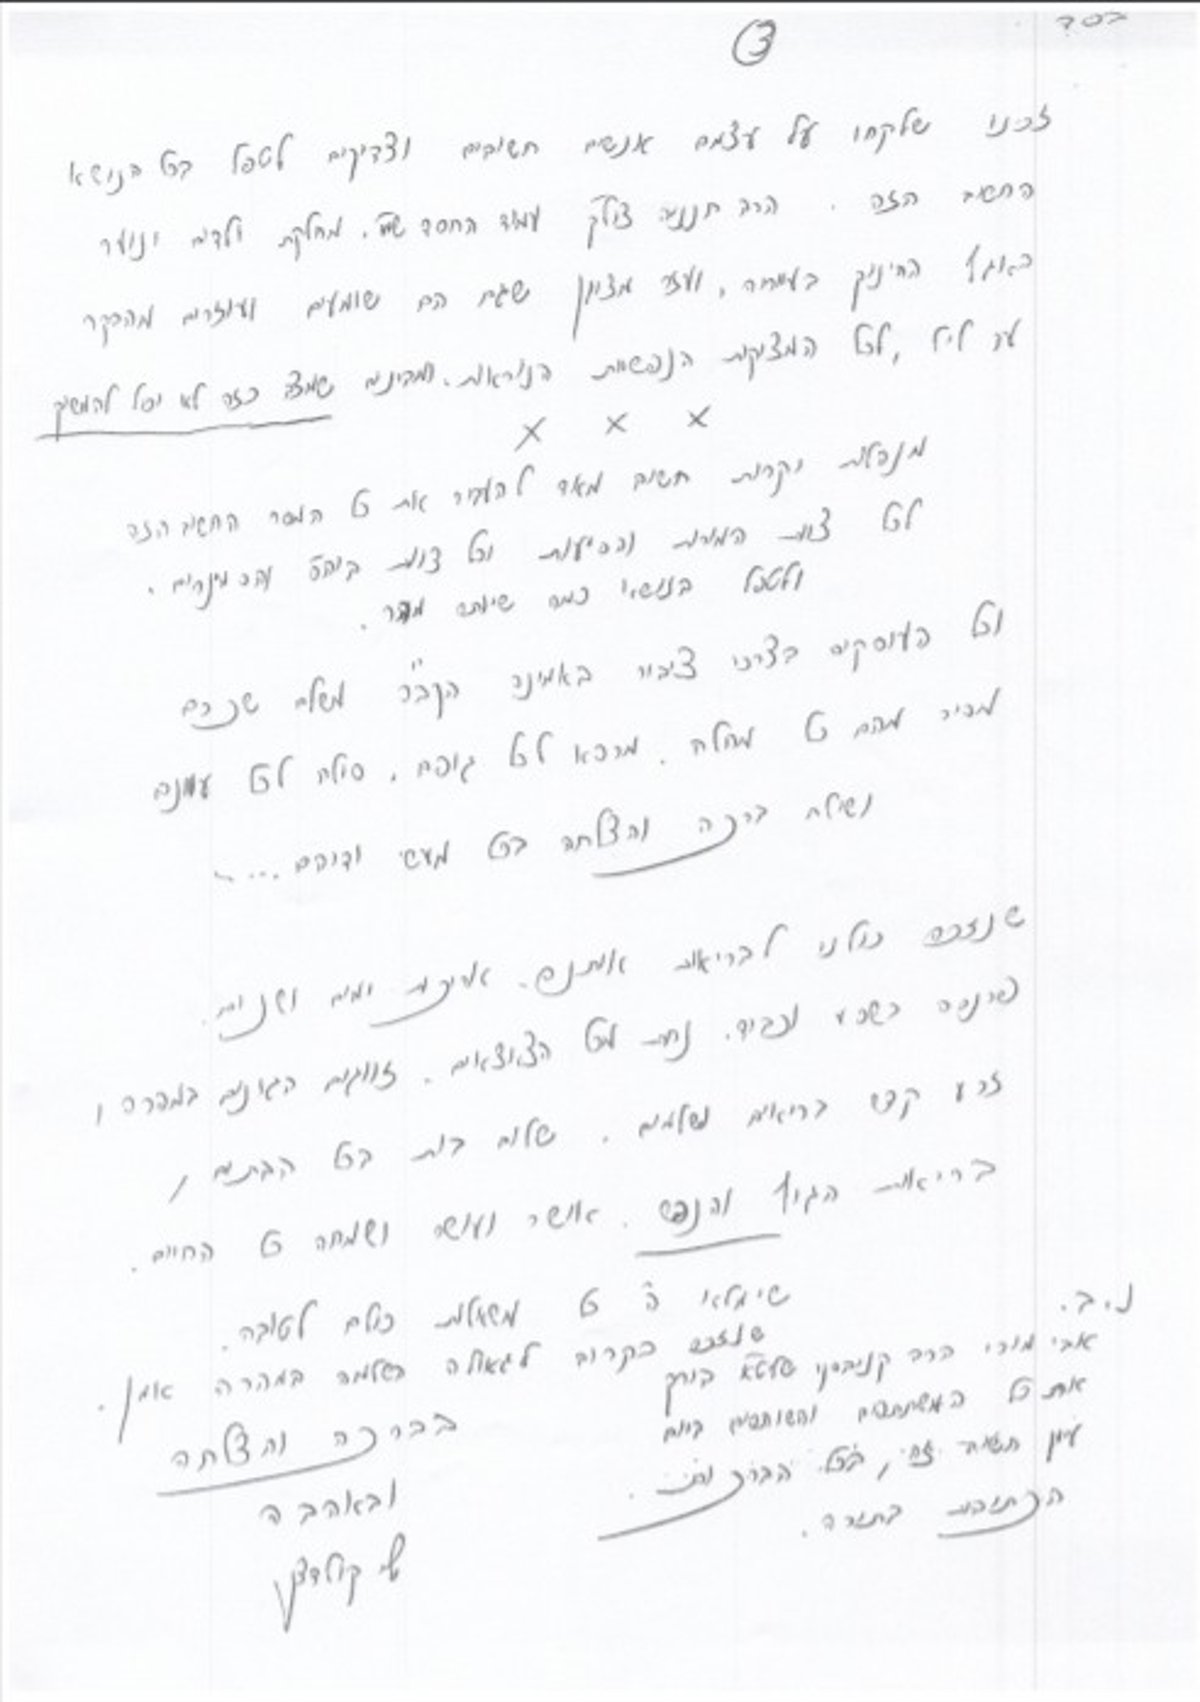 בסד
3
זכנו שלקחו על עצמם אנשים חשובים וצדיקים לטפל בכל הנושא
החשוב הזה . הרב חנניה צולק עמוד החסד מחלקת ילדים ונוער
באגף החינוך בעיריה, ועזר מציון שגם הם שומעים ועוזרים מהבקר
עד ליל, לכל המצוקות הנפשיות הנוראות. ומבינים שמצב כזה לא יכל להמשיך
x x x
מנהלות יקרות חשוב מאד להעביר את כל המסר החשוב הזה
לכל צוות המורות והסייעות וכל צוות ביהס והסמינרים .
ולטפל בנושאי כמה שיותר מהר .
וכל העוסקים בצרכי ציבור באמונה הקב"ה ישלם שכרם
מסיר מהם כל מחלה . מרפא לכל גופם . סולח לכל עוונם
ושולח ברכה והצלחה בכל מעשי ידיהם ....
שנזכה כולנו לבריאות איתנה. אריכות ימים ושנים .
פרנסה בשפע וכבוד. נחת מכל הצאצאים . זווגים הגונים במהרה ,
זרע קודש בריאים ושלמים . שלום בית בכל הבתים ,
בריאות הגוף והנפש . אושר ועושר ושמחה כל החיים .
שימלאו ה' כל משאלות כולם לטובה .
שנזכה בקרוב לגאולה השלמה במהרה אמן .
בברכה והצלחה
ובאהבה
שי קולדצקי
נ.ב.
אבי מורי הרב קניבסקי שליטא בירך
את כל המשתתפים והשותפים ביום
עיון חשוב זה, בכל הברכות .
הכתובות בתורה .